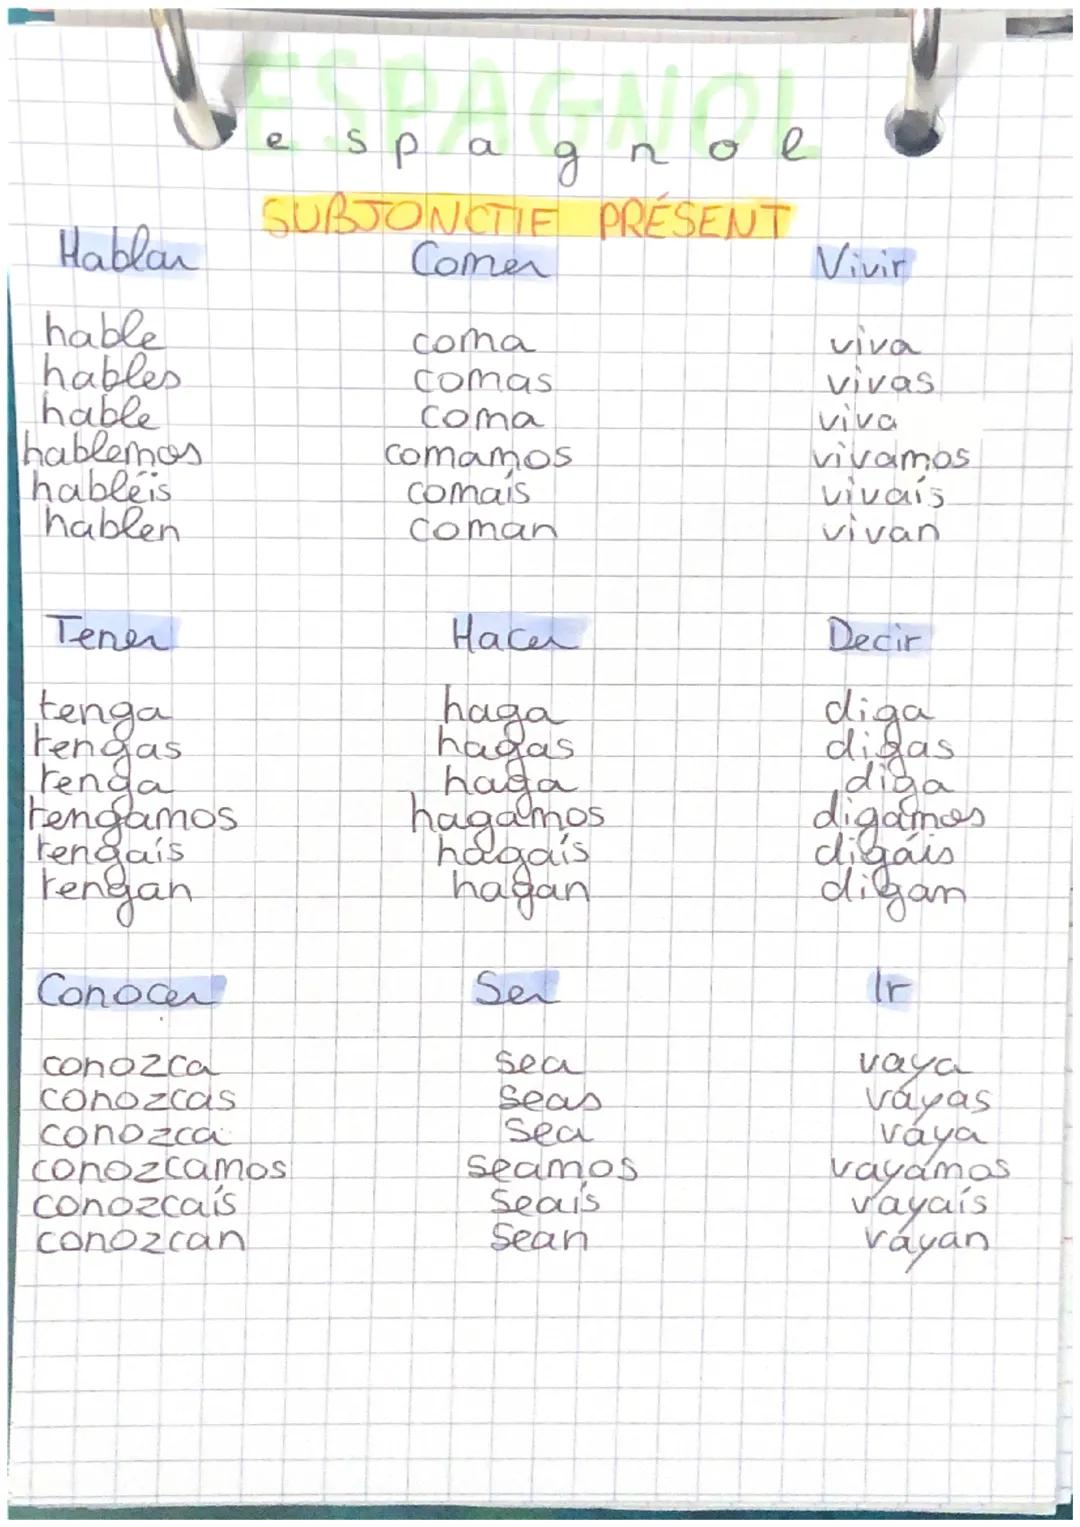 ESPAGNOL
espagnol
SUBJONCTIF PRÉSENT
Hablar Comer Vivir
hable coma viva
hables comas vivas
hable coma viva
hablemos comamos vivamos
habléis comaís vivaís
hablen coman vivan
Tener Hacer Decir
tenga haga diga
tengas hagas digas
tenga haga diga
tengamos hagamos digamos
tengaís hagaís digáis
tengan hagan digan
Conocer Ser Ir
conozca sea vaya
conozcas seas vayas
conozca sea vaya
conozcamos seamos vayamos
conozcaís seaís vayaís
conozcan sean vayan